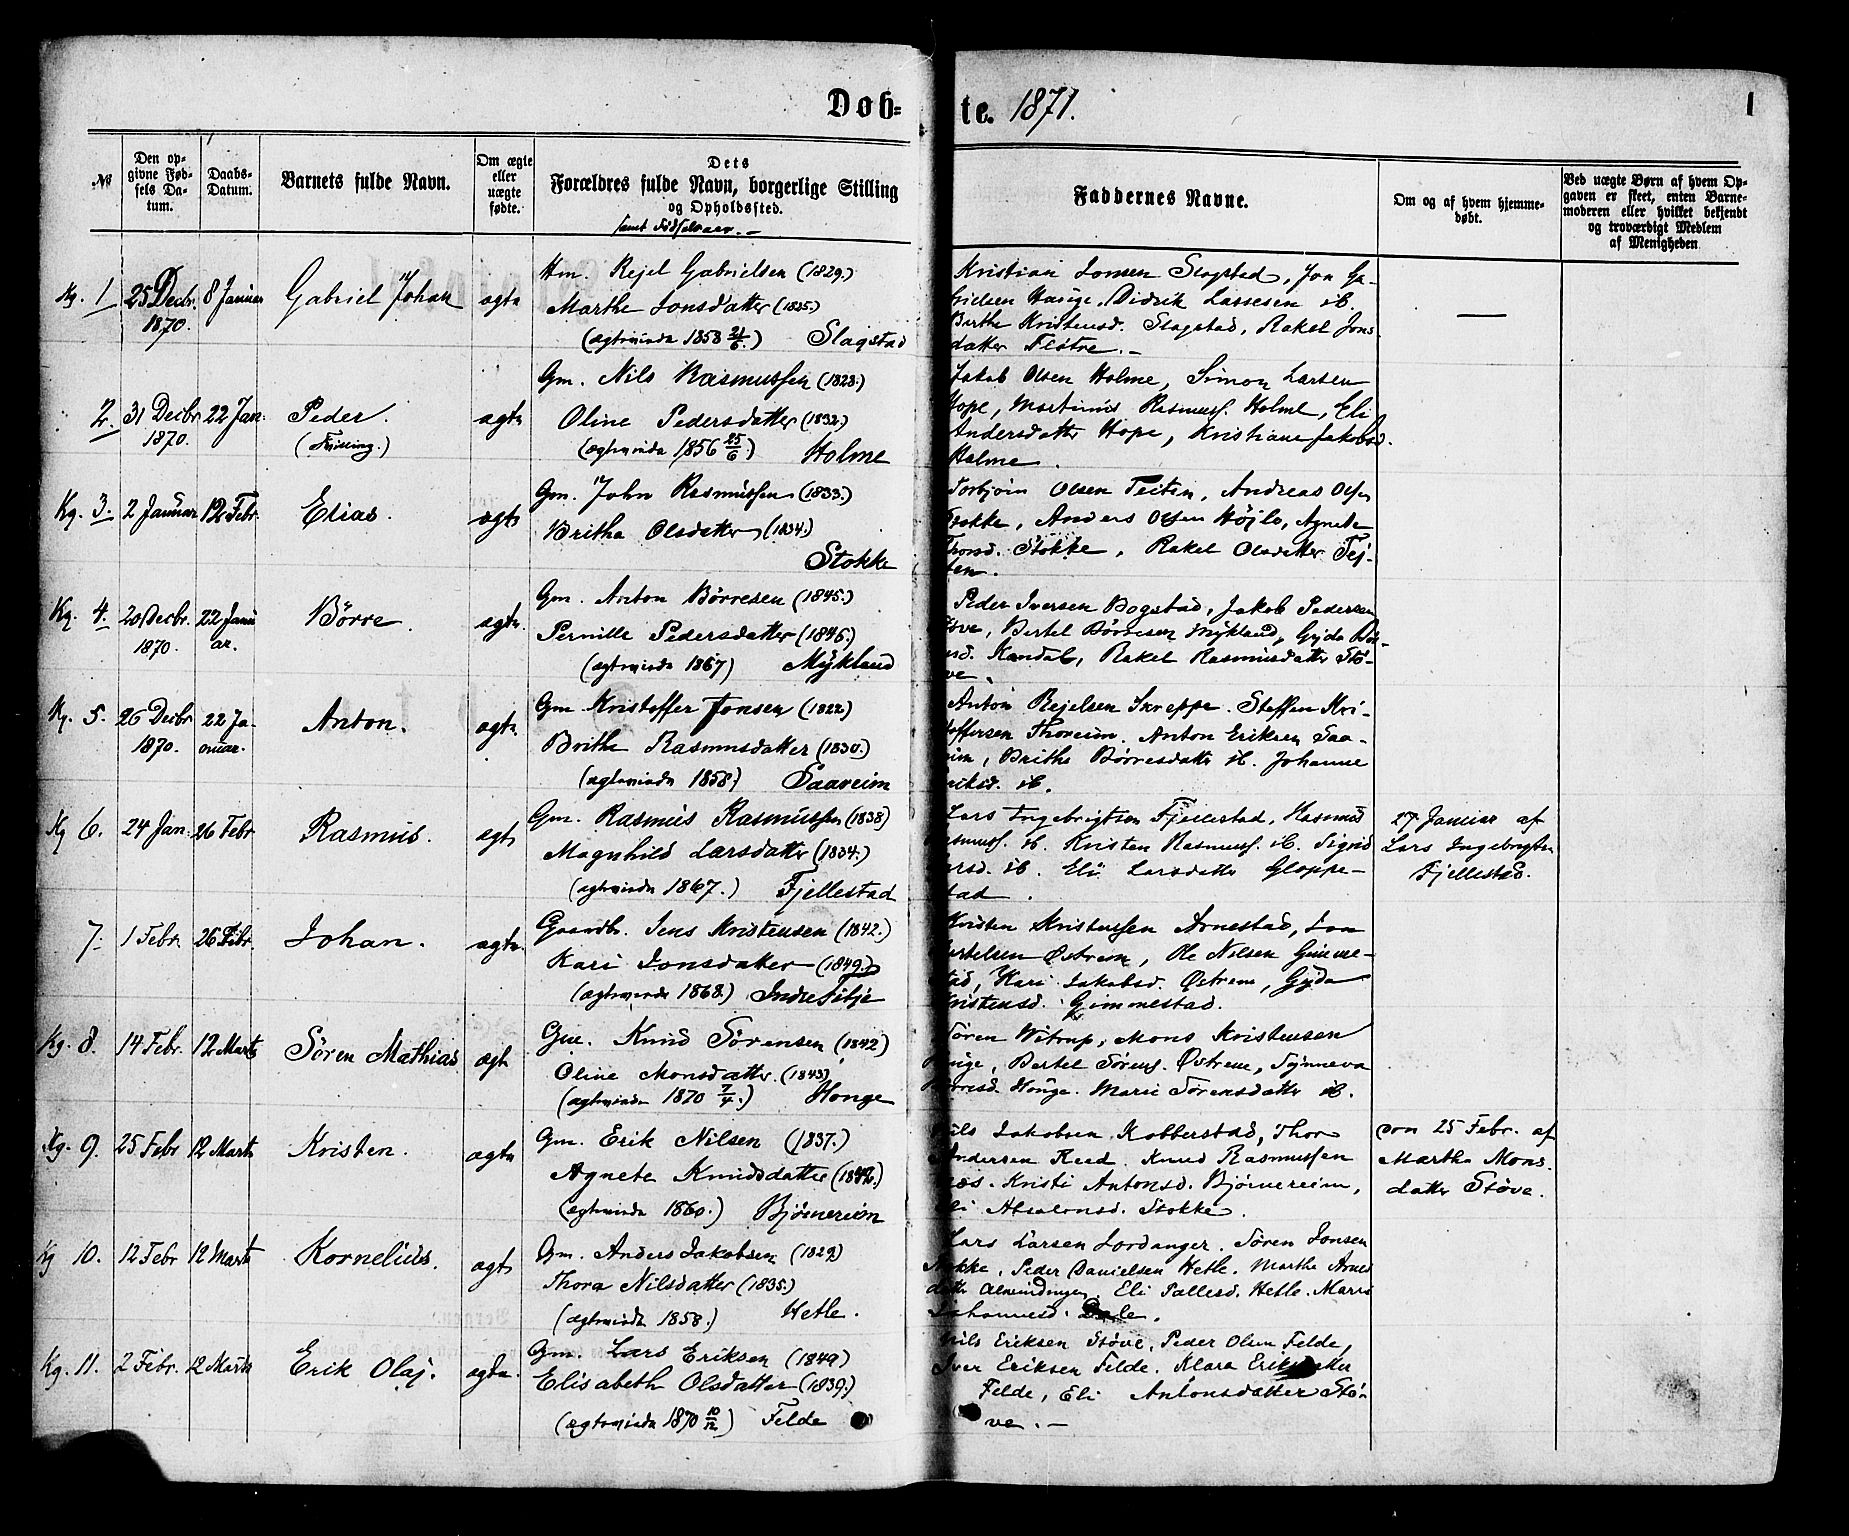 Døb-
te. 1871.
1
№
Den op-
givne Fød-
sels Da-
tum.
Daabs-
Datum.
Barnets fulde Navn.
Om ægte
eller
uægte
fødte.
Dets
Forældres fulde Navn, borgerlige Stilling
og Opholdssted.
samt Fødselsaar.-
Faddernes Navne.
Om og af hvem hjemme-
døbt.
Ved uægte Børn af hvem Op-
gaven er skeet, enten Barne-
moderen eller hvilket bekjendt
og troværdigt Medlem
af Menigheden
Kg. 1 25 Decbr. 1870. 8 Januar Gabriel Johan ægte
Hm. Rejel Gabrielsen (1829.)
Marthe Jonsdatter (1835.)
(ægteviede 1858 21/6.) Slagstad
Kristian Jonsen Slagstad, Jon Ga-
brielsen Hauge, Didrik Lassesen ib.
Berthe Kristensd. Slagstad, Rakel Jons
datter Fløtre.-
2. 31 Decbr 1870. 22 Jan. Peder. (Tvilling.) ægte
Gm. Nils Rasmussen (1828.)
Oline Pedersdatter (1832.)
(ægteviede 1856 25/6) Holme
Jakob Olsen Holme, Simon Larsen
Hope, Martinus Rasmuss. Holme, Eli
Andersdatter Hope, Kristiane Jakobsd.
Holme.
Kg. 3. 2 Januar 12 Febr. Elias. ægte
Gm. John Rasmussen (1833.)
Britha Olsdatter (1834.)
Stokke
Torbjørn Olsen Teiten, Andreas Olsen
Stokke, Anders Olsen Højlo, Agnete
Thorsd. Stokke, Rakel Olsdatter Tej-
ten.
Kg. 4. 20 Decbr. 1870. 22 Janu
ar. Børre. ægte.
Gm. Anton Børresen (1845.)
Pernille Pedersdatter (1846.)
(ægteviede 1867) Mykland
Peder Iversen Bogstad, Jakob Pedersen
Støve, Bertel Børresen Mykland, Gyda Bør-
resd. Kandal, Rakel Rasmusdatter Stø-
ve.
Kg. 5. 26 Decbr 1870. 22 Ja-
nuar. Anton. ægte.
Gm Kristoffer Jonsen (1822)
Brithe Rasmusdatter (1830.)
(ægteviede 1858.) Saaveim
Anton Rejelsen Skreppe. Steffen Kri-
stoffersen Thoreim. Anton Eriksen Saa-
veim, Brithe Børresdatter ib. Johanne
Eriksd. ib.
Kg 6. 24 Jan. 26 Febr Rasmus. ægte
Gm. Rasmus Rasmussen (1838)
Magnhild Larsdatter (1834.)
(ægteviede 1867.) Fjellestad
Lars Ingebrigtsen Fjellestad, Rasmus
Rasmuss. ib. Kristen Rasmuss. ib. Sigrid
Larsd. ib. Eli Larsdatter Gloppe-
stad.
27 Januar af
Lars Ingebrigtsen
Fjellestad.
7. 1 Febr. 26 Febr. Johan. ægte.
Gaardbr. Jens Kristensen (1842.)
Kari Jonsdatter (1849.)
(ægteviede 1868.) Indre Fitje
Kristen Kristensen Arnestad, Jon
Bertelsen Østrem, Ole Nilsen Gimme-
stad, Kari Jakobsd. Østrem, Gyda
Kristensd. Gimmestad.
Kg. 8. 14 Febr. 12 Marts Søren Mathias ægte
Gm. Knud Sørensen (1842)
Oline Monsdatter (1843)
(ægteviede 1870 7/4.) Houge
Søren Witrup, Mons Kristensen
Houge, Bertel Sørens. Østrem, Synneva
Børresd. Houge. Marie Sørensdatter ib.
Kg. 9. 25 Febr 12 Marts Kristen. ægte
Gm. Erik Nilsen (1837.)
Agnete Knudsdatter (1842.)
(ægteviede 1860.) Bjørnereim
Nils Jakobsen Kobberstad, Thor
Andersen Reed. Knud Rasmussen
Næs. Kristi Antonsd. Bjørnereim,
Eli Absalonsd. Stokke.
den 25 Febr. af
Marthe Mons-
datter Støve.
Kg 10. 12 Febr 12 Marts Kornelius. ægte
Gm. Anders Jakobsen (1829)
Thora Nilsdatter (1835.)
(ægteviede 1858.) Hetle.
Lars Larsen Lordanger. Søren Jonsen
Stokke, Peder Danielsen Hetle. Marthe Arnes
datter Almindingen, Eli Pallesd. Hetle. Marie
Johannesd. Dale.
Kg. 11. 2 Febr. 12 Marts Erik Olaj. ægte.
Gm. Lars Eriksen (1849)
Elisabeth Olsdatter (1839.)
(ægteviede 1870 10/12) Felde
Nils Eriksen Støve, Peder Olsen Felde,
Iver Eriksen Felde. Klara Eriksdatter
Felde, Eli Antonsdatter Stø-
ve.-